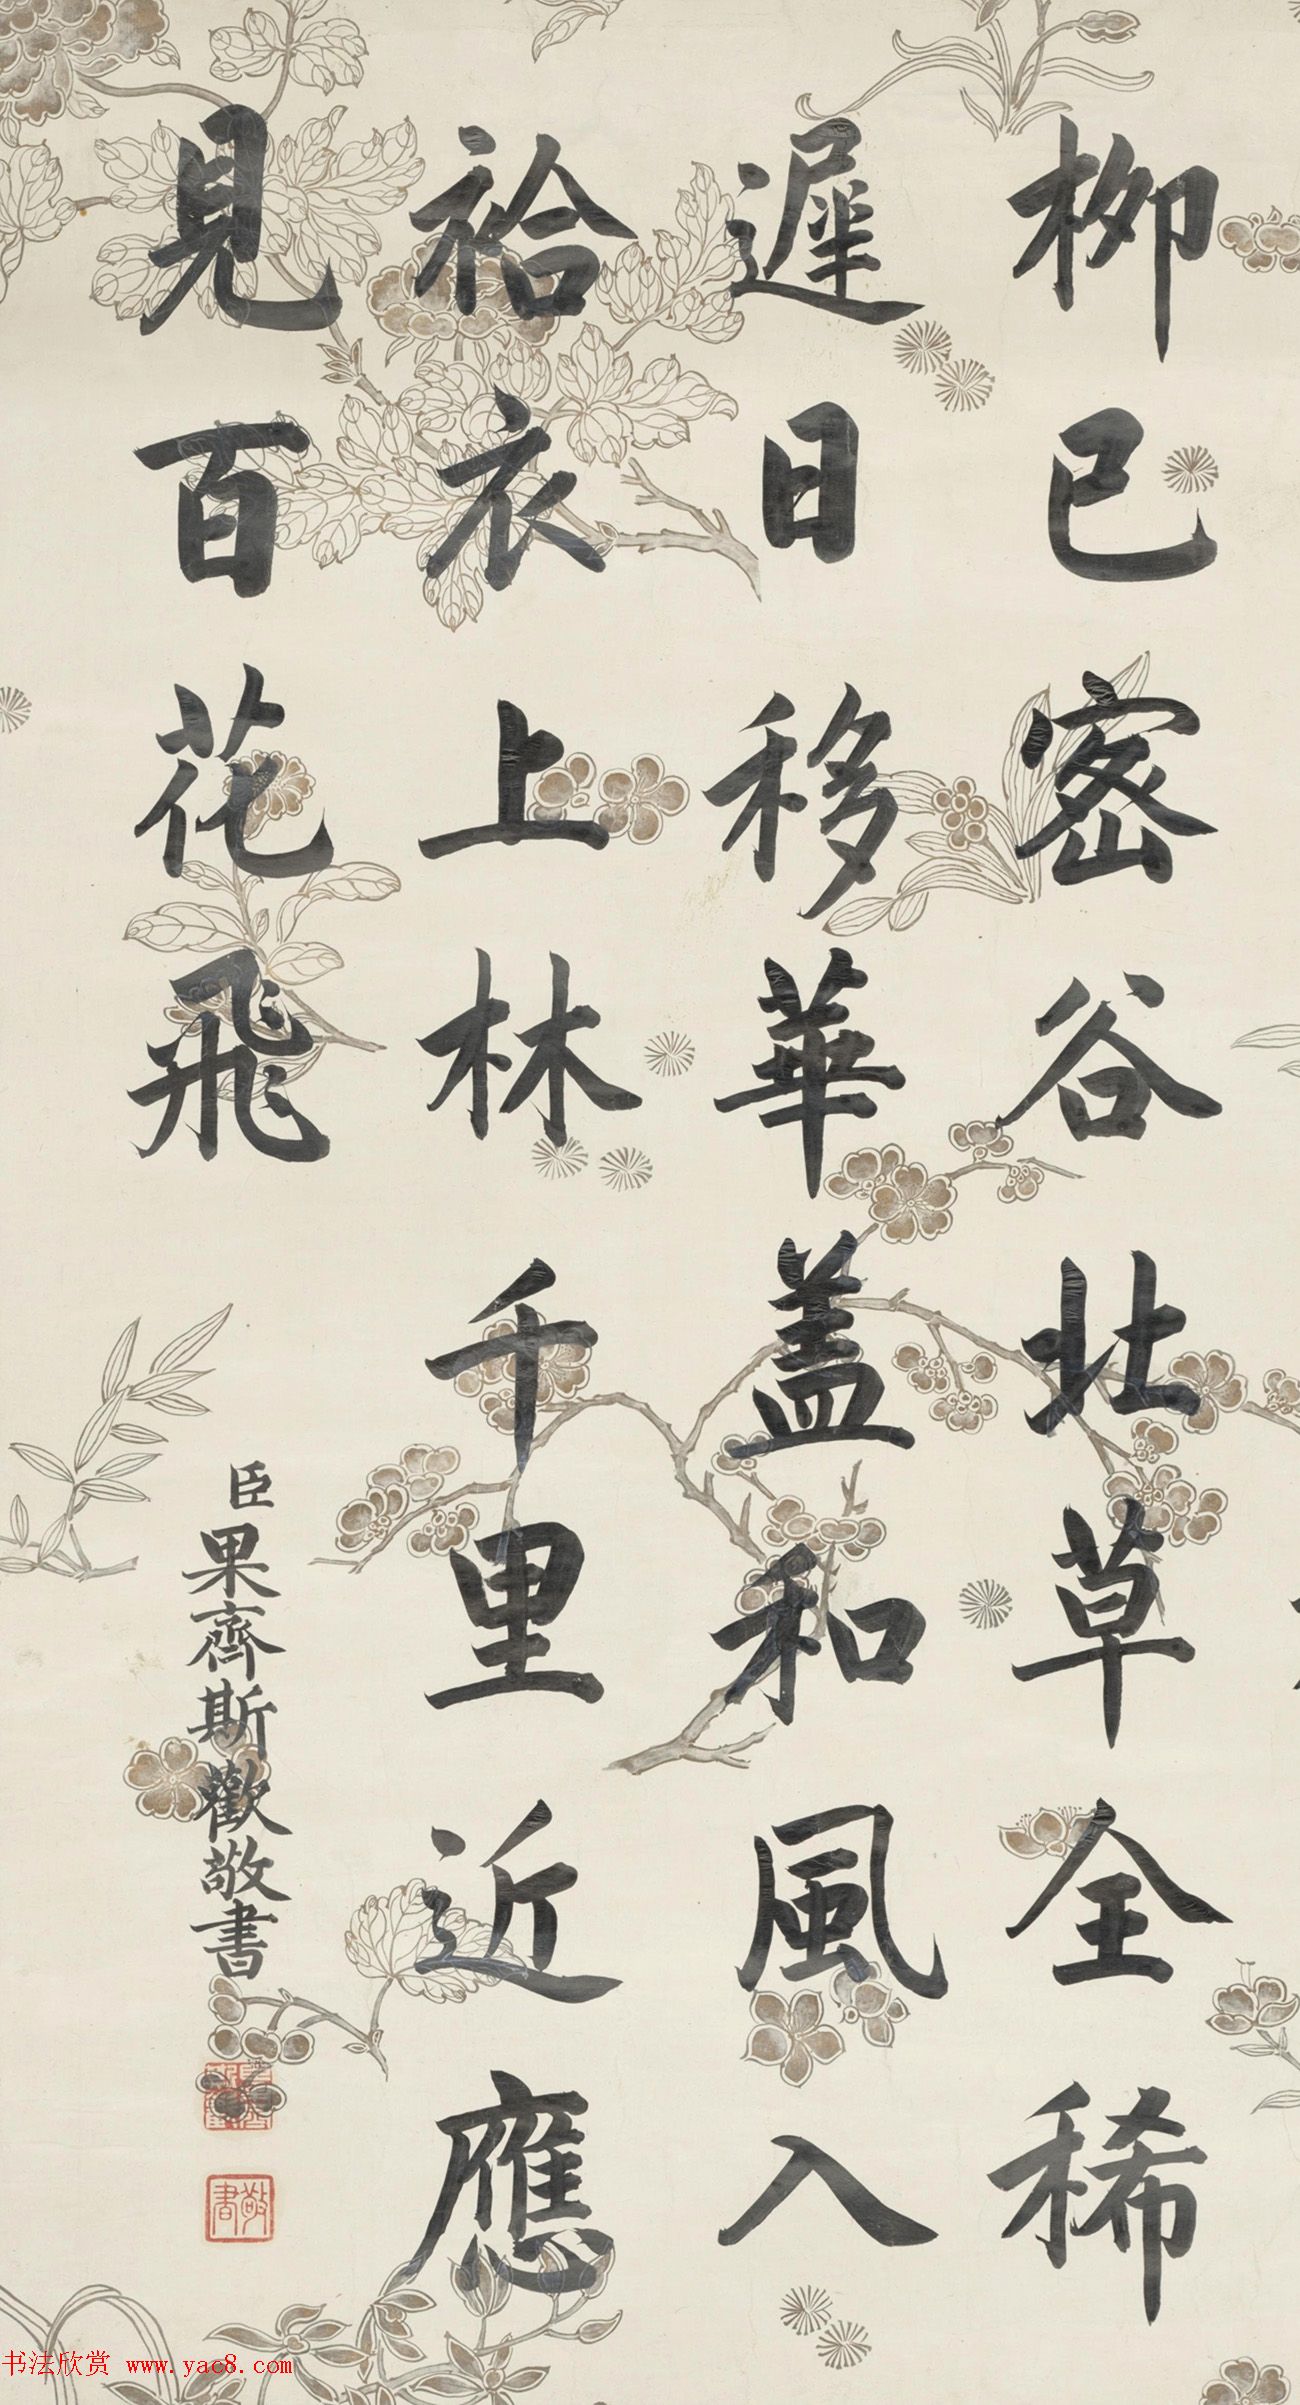 柳已密谷北草全稀
遲日移華蓋和風入
袷衣上林千里近應
見百花飛
臣果齊斯歡敬書
敬書
书法欣赏 www.yac8.com